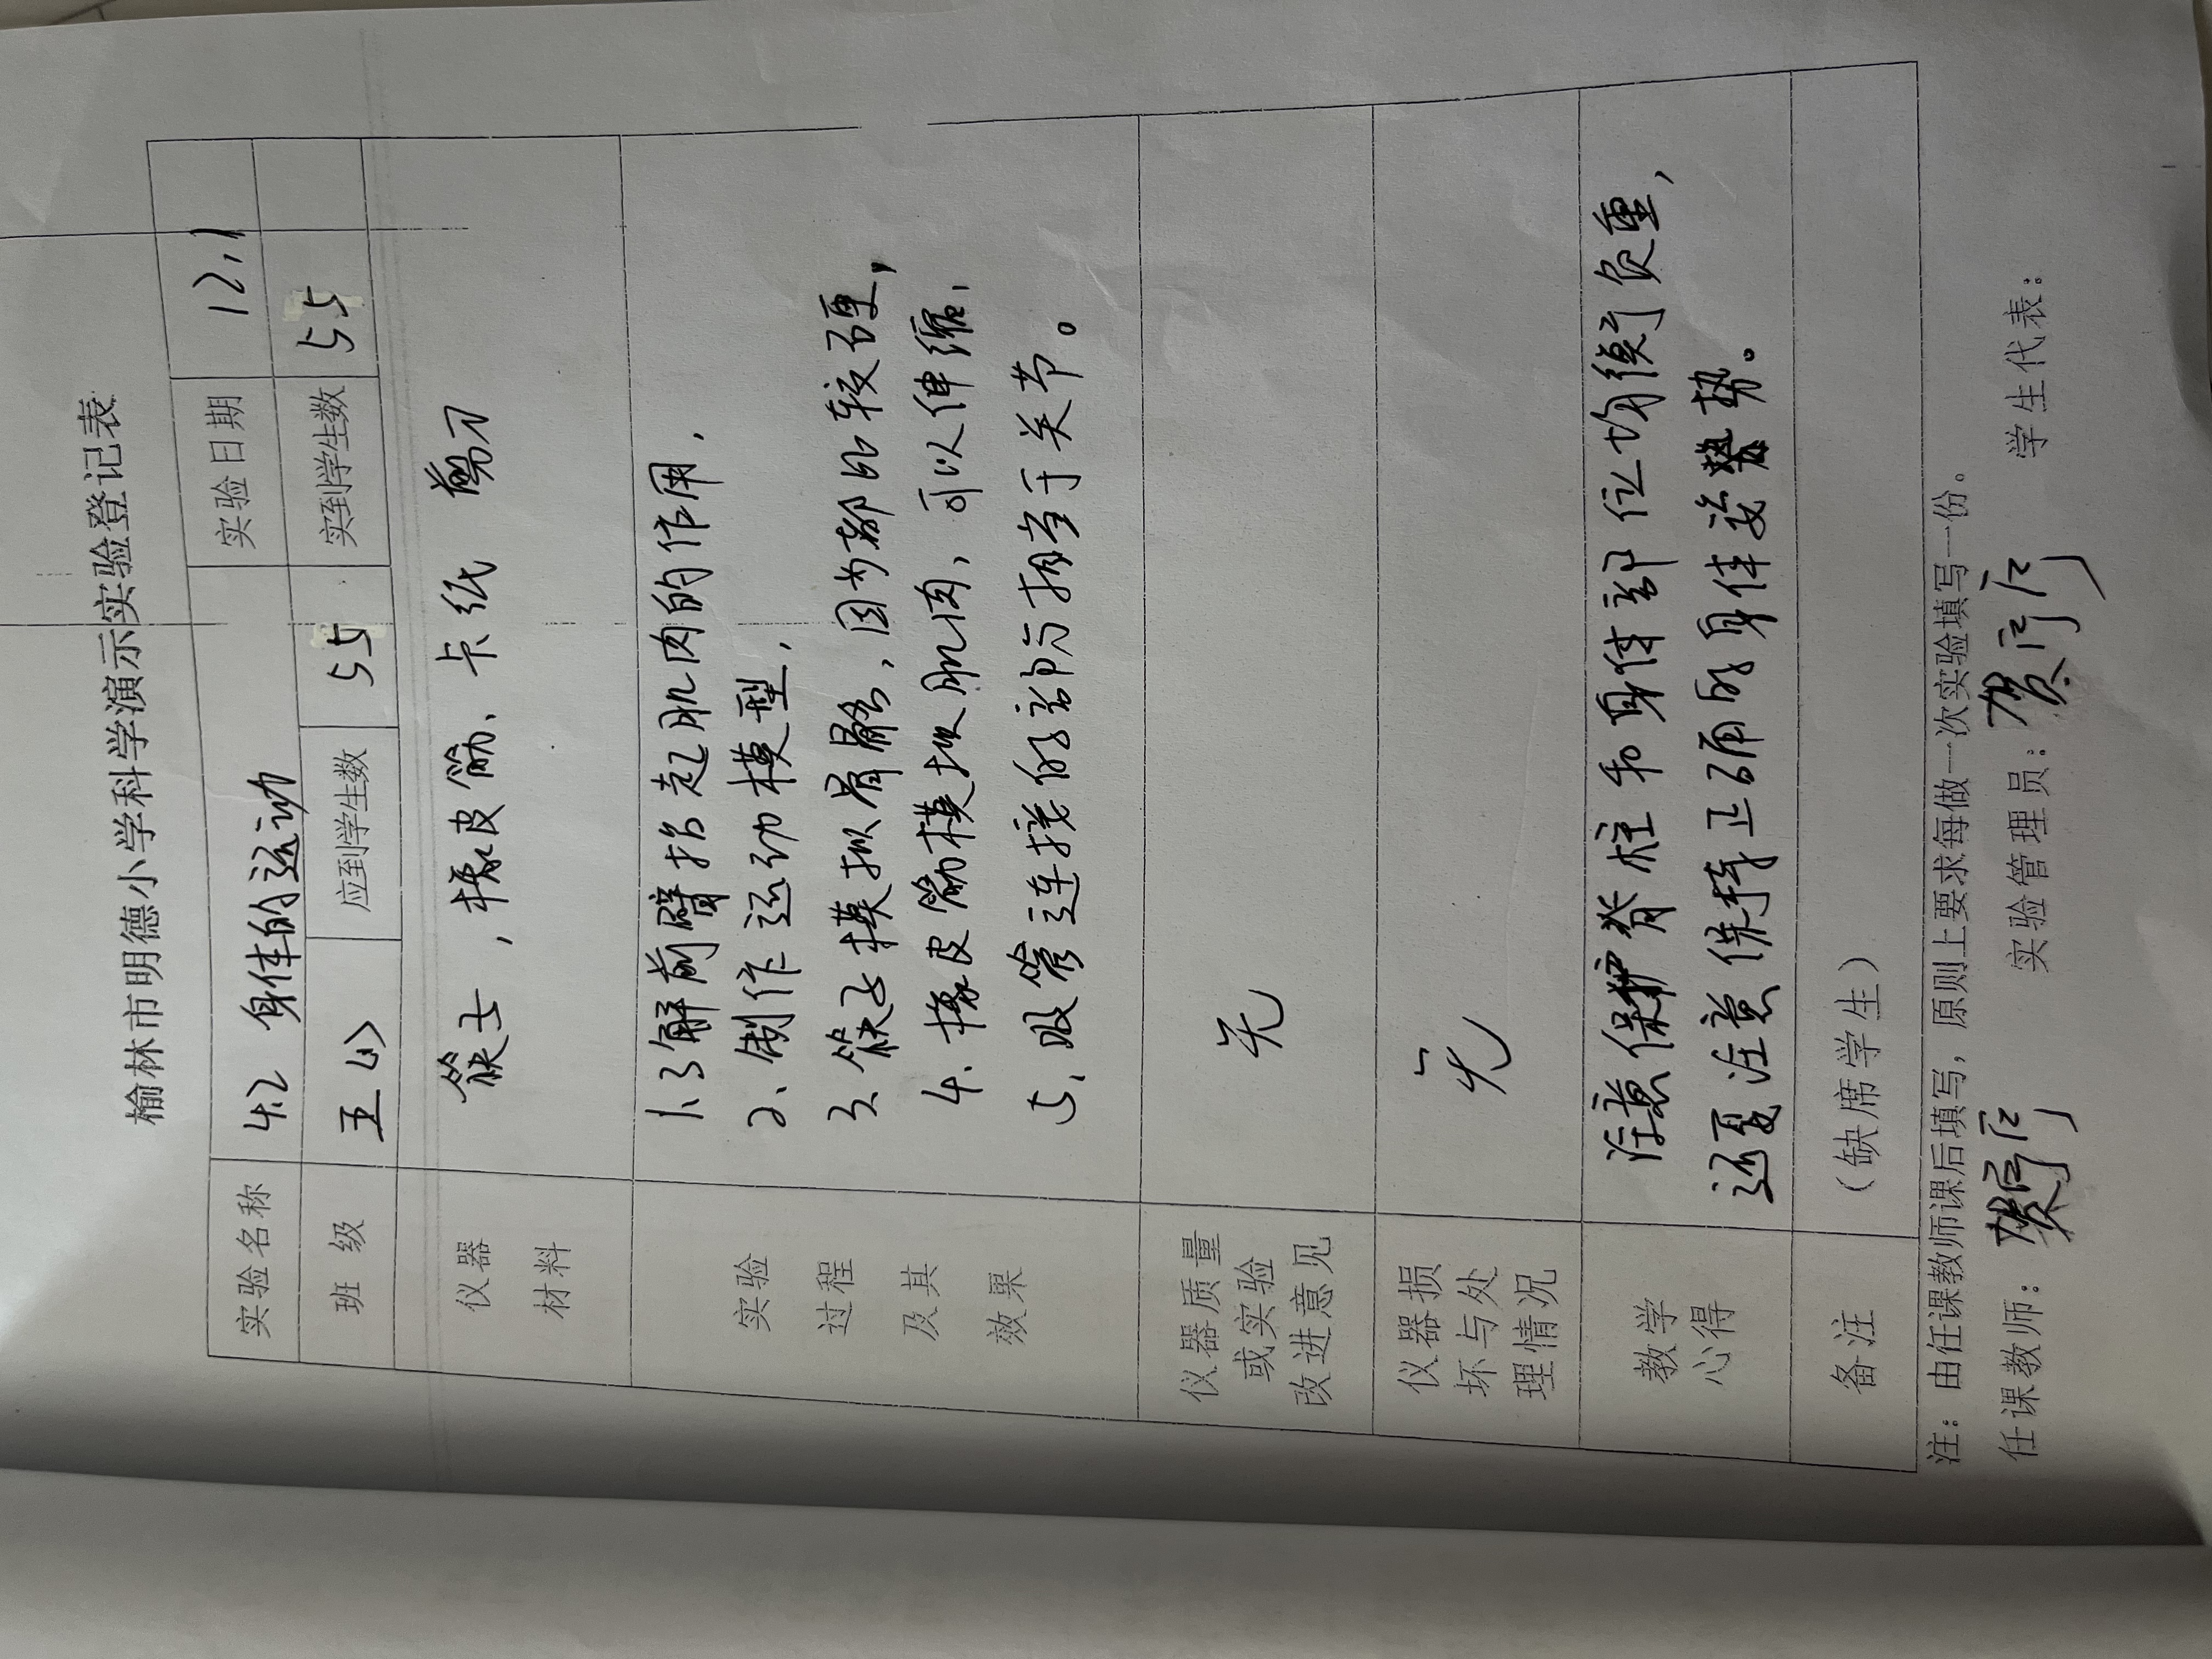 榆林市明德小学科学演示实验登记表
实验名称 4.2 身体的运动 实验日期 12.1
班 级 五 应到学生数 55 实到学生数 55
仪器
材料
筷子,橡皮筋、卡纸 剪刀
实验
过程
及其
效果
1.了解前臂抬起肌肉的作用.
2、制作运动模型.
3.筷子模拟骨骼,因为都比较硬,
4.橡皮筋模拟肌肉,可以伸缩.
5.吸管连接的部分相当于关节。
仪器质量
或实验
改进意见
无
仪器损
坏与处
理情况
无
教学
心得
注意保护脊柱和身体部位均衡负重,
还要注意保持正确的身体姿势。
备注 (缺席学生)
注:由任课教师课后填写,原则上要求每做一次实验填写一份。
任课教师: 实验管理员: 学生代表: